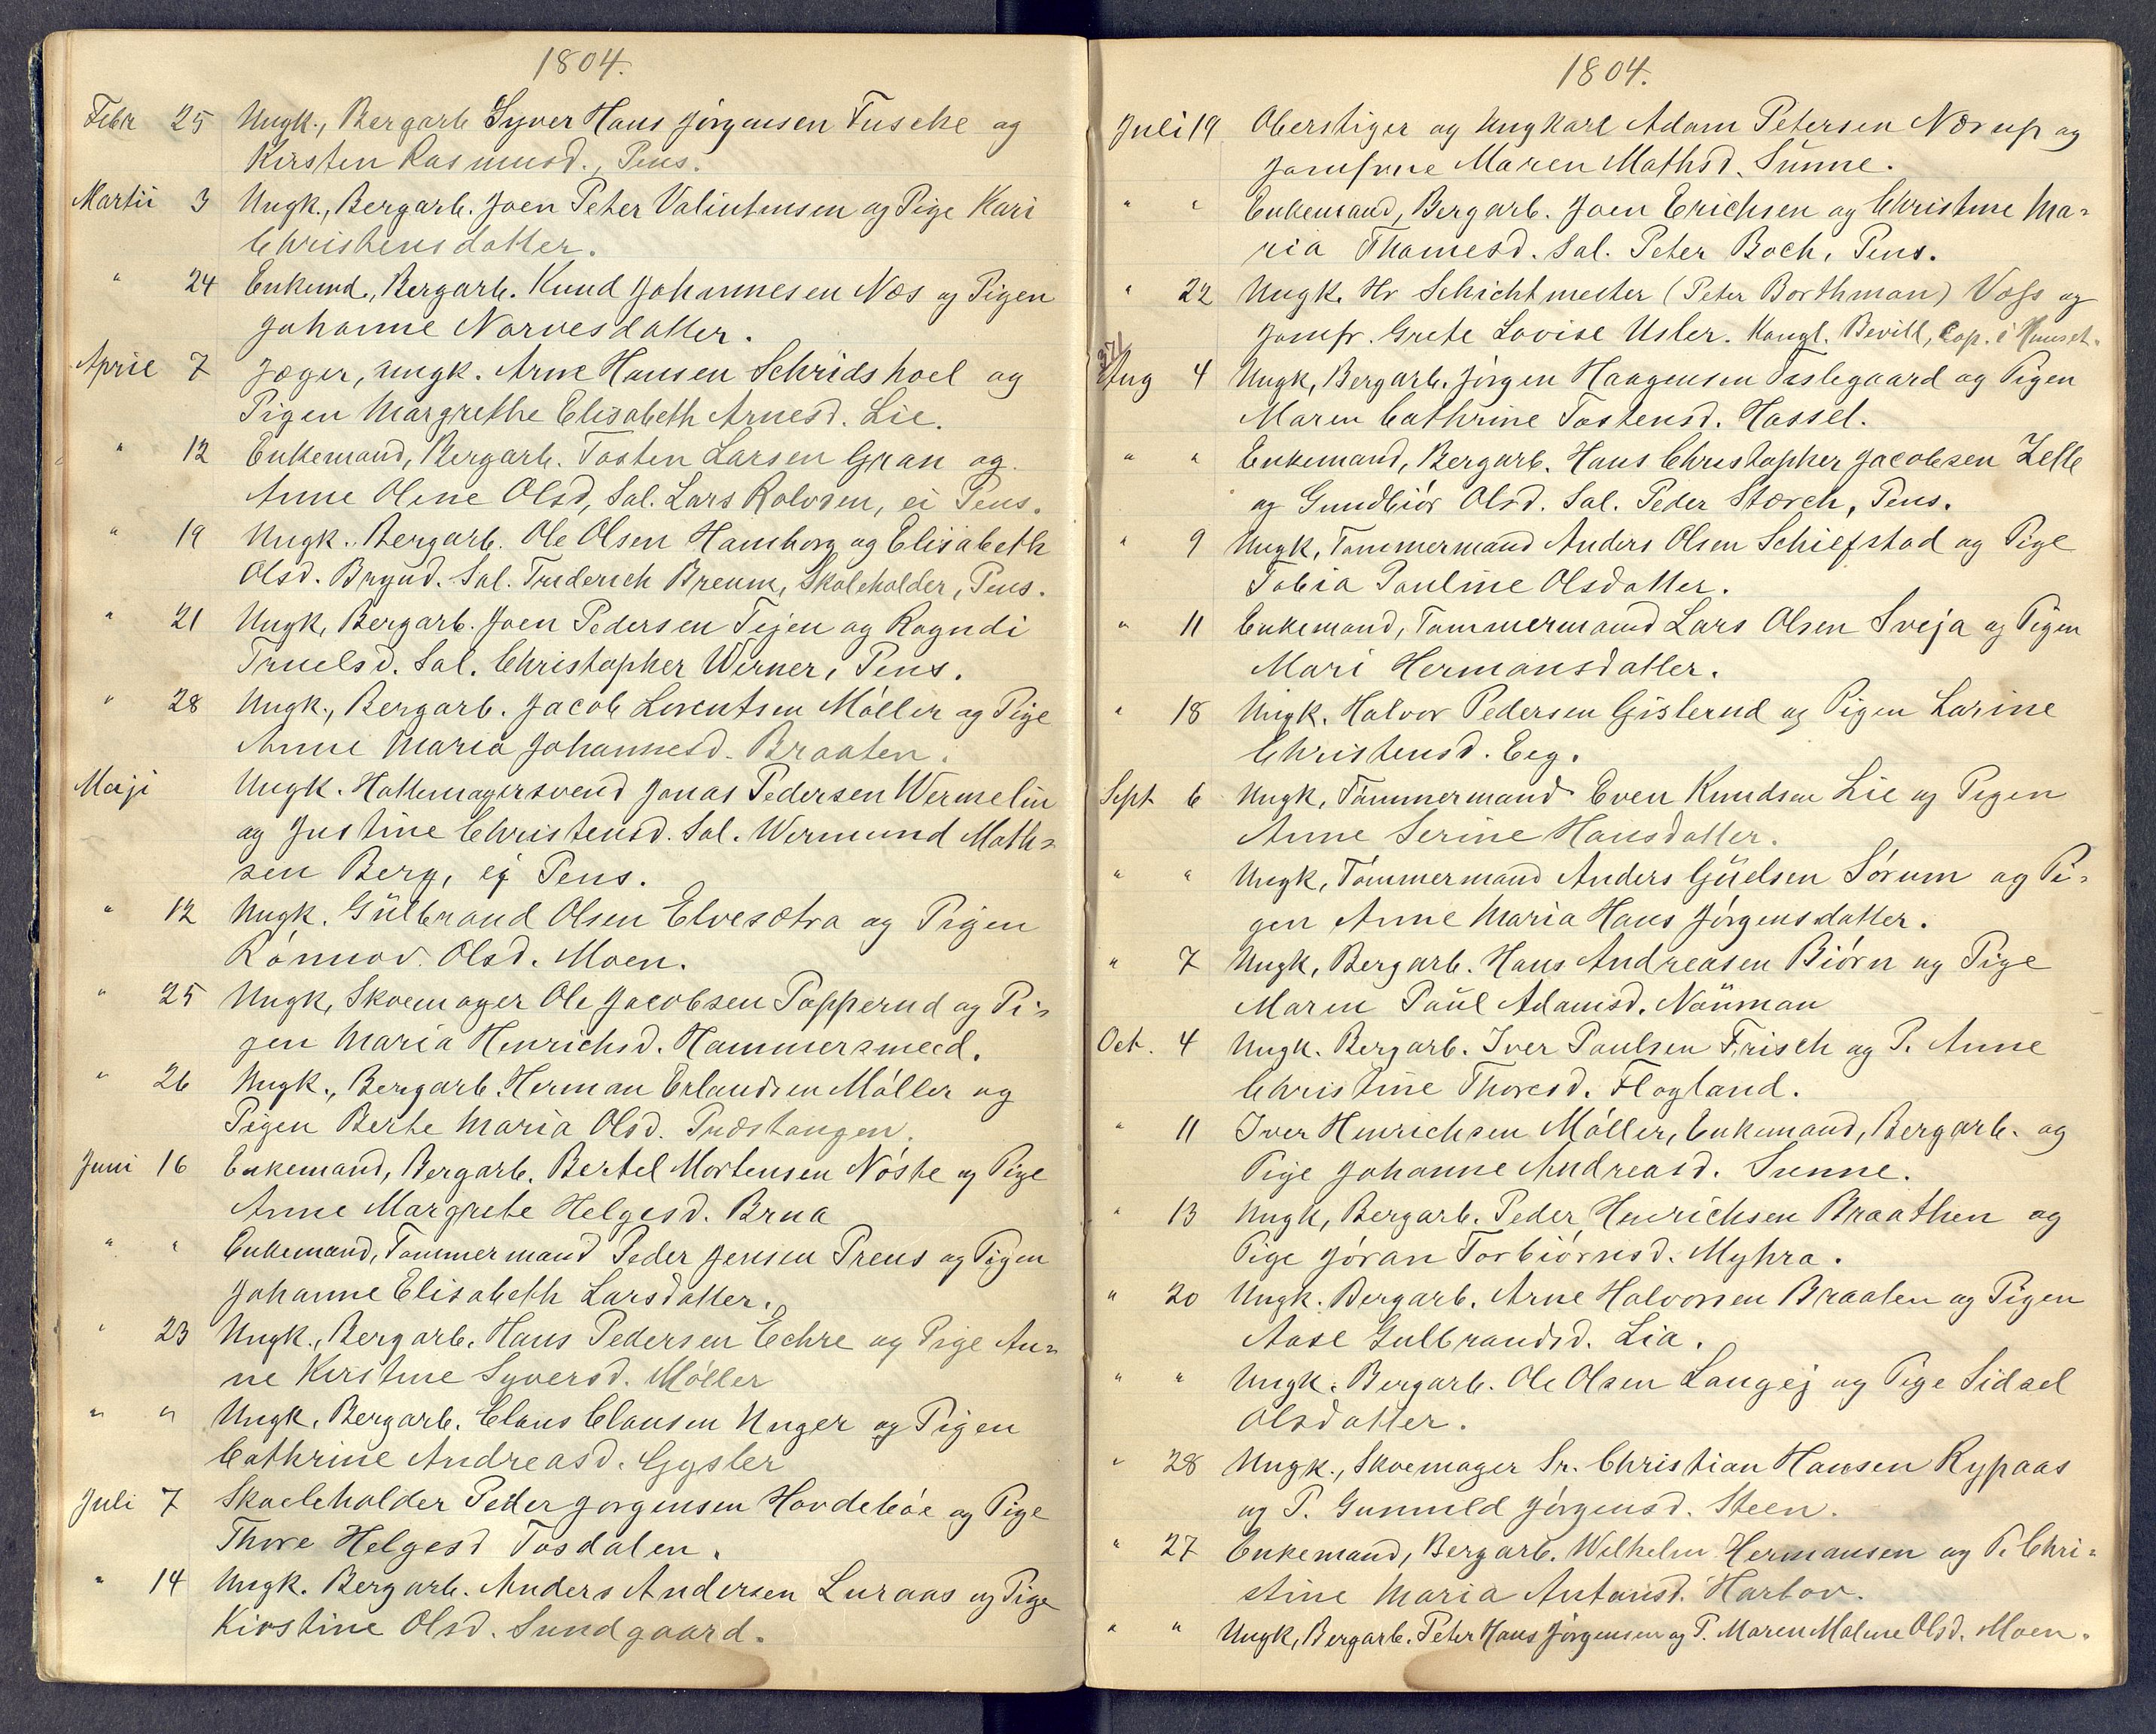 1804.
Febr 25 Ungk., Bergarb Syver Hans Jörgensen Fusche og
Kirsten Rasmusd., Pens.
Martii 3 Ungk., Bergarb. Joen Peter Valintinsen og Pige Kari
Christensdatter.
" 24 Enkemd., Bergarb. Knud Johannesen Næs og Pigen
Johanne Narvesdatter.
April 7 Jæger, ungk. Arne Hansen Schrüdshoel og
Pigen Margrethe Elisabeth Arnesd. Lie.
" 12 Enkemand, Bergarb. Tosten Larsen Gran og
Anne Oline Olsd, Sal. Lars Rolvsen, ei Pens.
" 19 Ungk. Bergarb. Ole Olsen Hamborg og Elisabeth
Olsd. Brynd. Sal. Friderich Breum, Skoleholder, Pens.
" 21 Ungk, Bergarb. Joen Pedersen Tejen og Rogndi
Truelsd. Sal. Christopher Werner, Pens.
" 28 Ungk., Bergarb. Jacob Lorentsen Möller og Pige
Anne Maria Johannesd. Braaten.
Maji Ungk. Hattemagersvend Jonas Pedersen Wermelin
og Justine Christensd. Sal. Wermund Math=
sen Berg, ej Pens.
" 12 Ungk. Gülbrand Olsen Elvesætra og Pigen
Rönnov Olsd. Moen.
" 25 Ungk, Skoemager Ole Jacobsen Papperud og Pi=
gen Maria Henrichsd. Hammersmed.
" 26 Ungk., Bergarb. Herman Erlandsen Möller og
Pigen Berte Maria Olsd. Præstangen.
Juni 16 Enkemand, Bergarb. Bertel Mortensen Nöste og Pige
Anne Margrete Helgesd. Brua
" " Enkemand, Tømmermand Peder Jensen Preus og Pigen
Johanne Elisabeth Larsdatter.
" 23 Ungk., Bergarb. Hans Pedersen Echre og Pige An=
ne Kirstine Syversd. Möller
" " Ungk. Bergarb. Claus Clausen Unger og Pigen
Cathrine Andreasd. Gysler
Juli 7 Skoeleholder Peder Jorgensen Hovdeböe og Pige
Thore Helgesd Fosdalen.
" 14 Ungk. Bergarb. Anders Andersen Luraas og Pige
Kirstine Olsd. Sundgaard.
1804.
Juli 19 Oberstiger og Ungkarl Adam Petersen Nørup og
Jomfrue Maren Mathsd. Sünne.
" " Enkemand, Bergarb. Joen Erichsen og Christine Ma=
ria Thomesd. Sal. Peter Boch, Pens.
" 22 Ungk. Hr Schichtmester (Peter Borthman) Voss og
Jomfr. Grete Lovise Usler. Kongl. Bevill, Cop. i Huuset.
Aug 4 Ungk, Bergarb. Jörgen Haagensen Taslegaard og Pigen
Maren Cathrine Tostensd. Hassel.
" " Enkemand, Bergarb. Hans Christopher Jacobsen Zelle
og Gundbiör Olsd. Sal. Peder Storch, Pens.
" 9 Ungk, Tømmermand Anders Olsen Schiefstad og Pige
Tobia Pauline Olsdatter.
" 11 Enkemand, Tømmermand Lars Olsen Sveja og Pigen
Mari Hermansdatter.
" 18 Ungk. Halvor Pedersen Gislerud og Pigen Larine
Christensd. Eeg.
Sept 6 Ungk, Tömmermand Even Knudsen Lie og Pigen
Anne Serine Hansdatter.
" " Ungk, Tömmermand Anders Güelsen Sörum og Pi=
gen Anne Maria Hans Jörgensdatter.
" 7 Ungk, Bergarb. Hans Andreasen Biörn og Pige
Maren Paul Adamsd. Nauman
Oct. 4 Ungk. Bergarb. Iver Paulsen Frisch og P. Anne
Christine Thoresd. Flogland.
" 11 Iver Henrichsen Möller, Enkemand, Bergarb. og
Pige Johanne Andreasd. Sunne.
" 13 Ungk, Bergarb. Peder Henrichsen Braathen og
Pige Jöran Torbiörnsd. Myhra.
" 20 Ungk. Bergarb. Arne Halvorsen Braaten og Pigen
Aase Gulbrandsd. Lia.
" " Ungk. Bergarb. Ole Olsen Langej og Pige Sidsel
Olsdatter.
" 28 Ungk., Skoemager Sr. Christian Hansen Rypaas
og P. Gunnild Jörgensd. Steen.
" 27 Enkemand, Bergarb. Wilhelm Hermansen og P. Chri=
stine Maria Antonsd. Hartov.
" " Ungk, Bergarb. Peter Hans Jörgensen og P. Maren Malene Olsd. Moen.